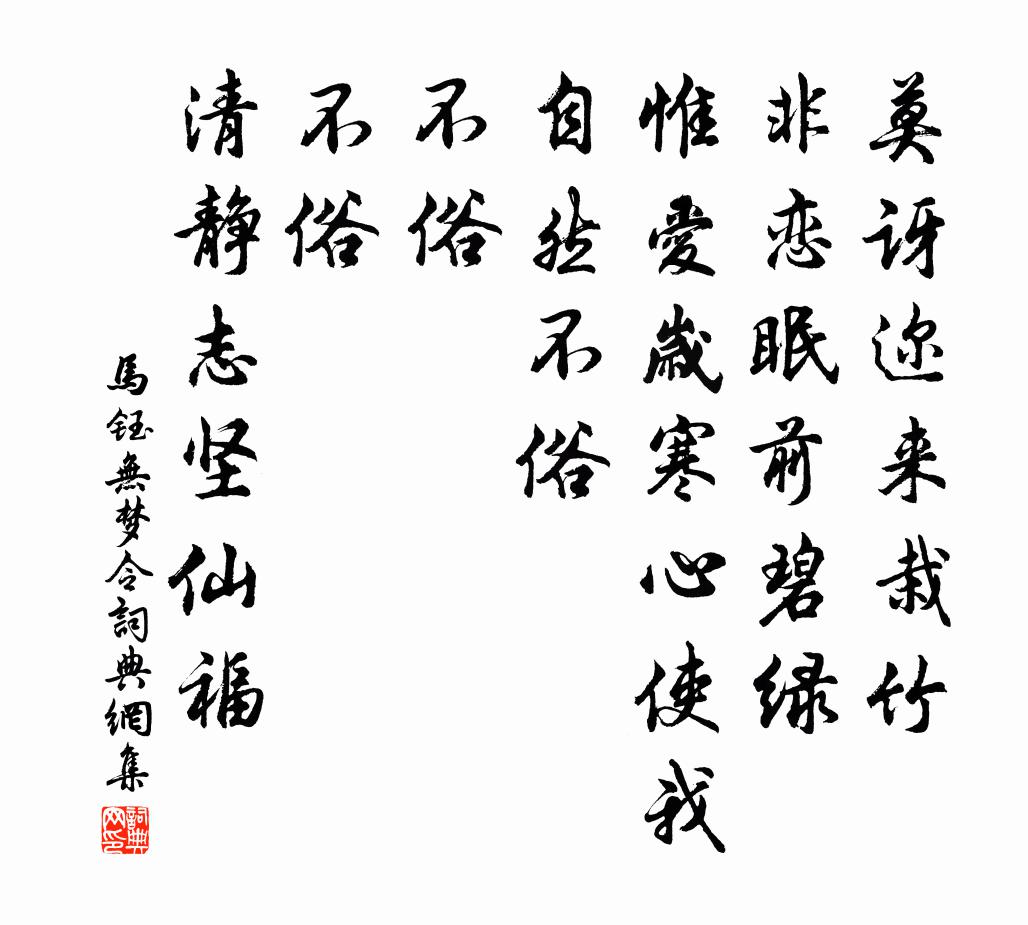 莫讶迩来栽竹
非恋眼前碧绿
惟爱岁寒心使我
自然不俗
不俗
不俗
清静志坚仙福
馬鈺無梦令詞典網集
詞典网印